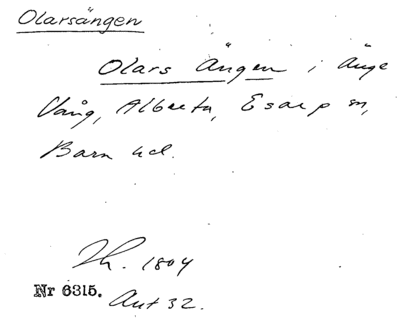 Olarsängen
Olars Ängen i Änge
Vång, Alberta, Esarp sn,
Bara hd.
Th. 1804
Nr 6315. Akt 32.